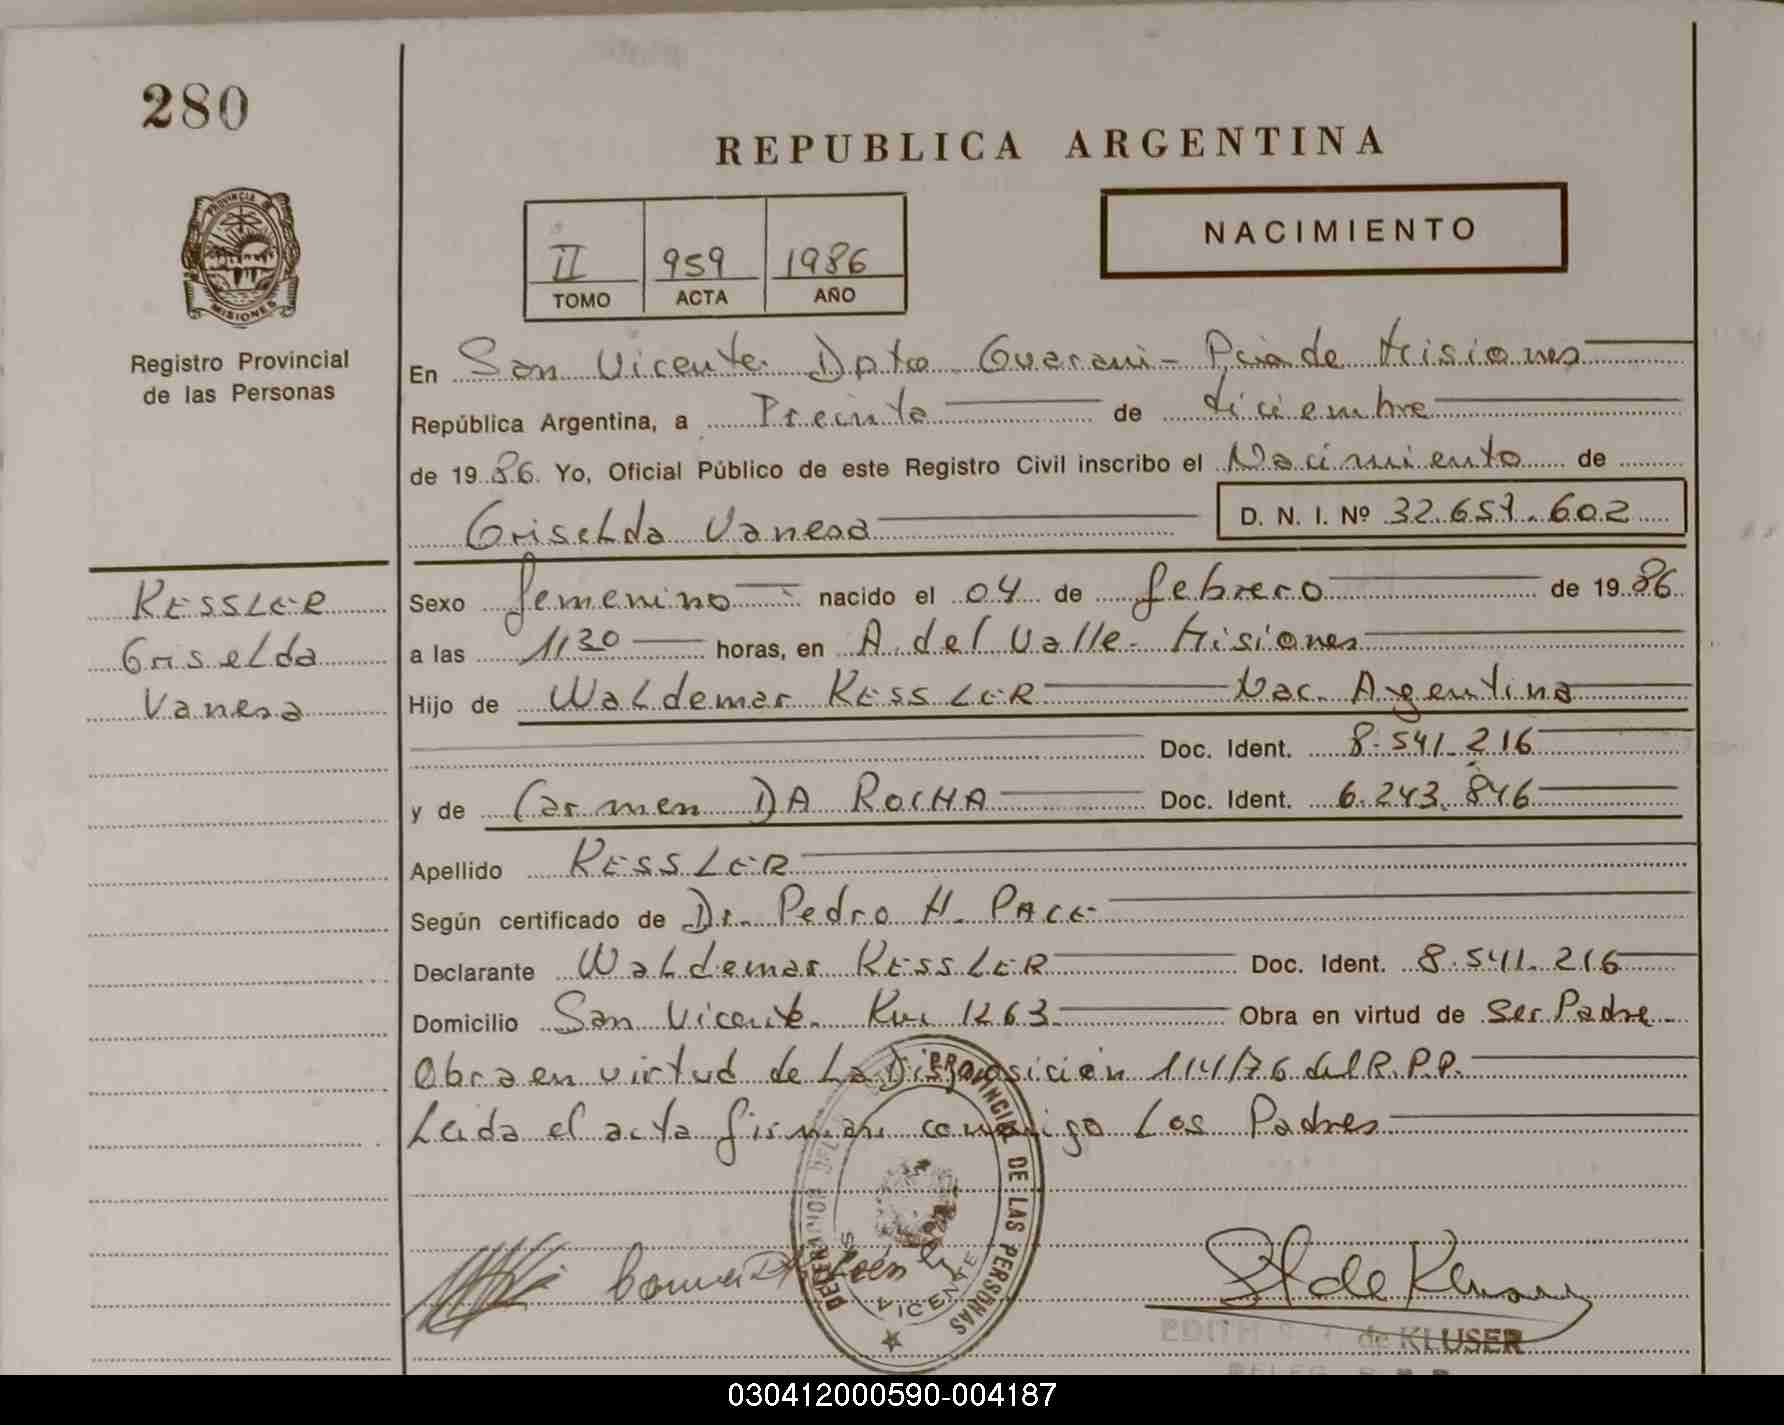 280
REPUBLICA ARGENTINA
PROVINCIA DE
MISIONES
Registro Provincial
de las Personas
II 959 1986
TOMO ACTA AÑO
NACIMIENTO
En San Vicente Dpto Guarani - Pcia de Misiones
República Argentina, a Treinta de diciembre
de 19 86. Yo, Oficial Público de este Registro Civil inscribo el Nacimiento de
Griselda Vanesa D. N. I. Nº 32.657.602
KESSLER
Griselda
Vanesa
Sexo femenino nacido el 04 de febrero de 19 86
a las 1130 horas, en A. del Valle - Misiones
Hijo de Waldemar KESSLER Nac. Argentina
Doc. Ident. 8.541.216
y de Carmen DA ROCHA Doc. Ident. 6.243.846
Apellido KESSLER
Según certificado de Dr. Pedro H. PACE
Declarante Waldemar KESSLER Doc. Ident. 8.541.216
Domicilio San Vicente Km 1263 Obra en virtud de Ser Padre
Obra en virtud de La Disposición 114/76 del R.P.P.
Leida el acta firman conmigo Los Padres
PROVINCIAL DE LAS PERSONAS
VICENTE
de KLUSER
030412000590-004187